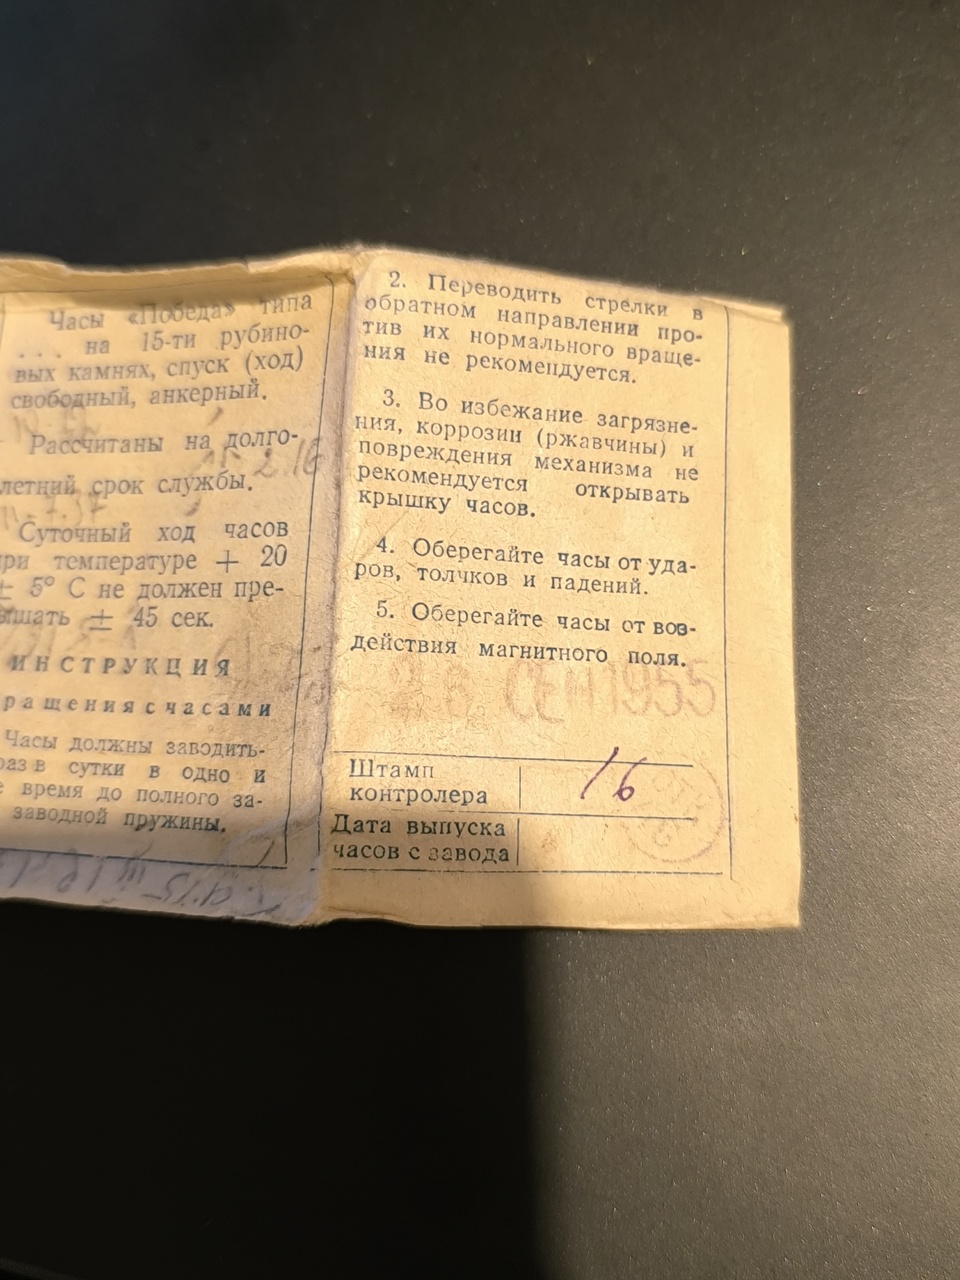 Часы «Победа» типа
... на 15-ти рубино-
вых камнях, спуск (ход)
свободный, анкерный.
Рассчитаны на долго-
летний срок службы.
Суточный ход часов
при температуре + 20
± 5° С не должен пре-
вышать ± 45 сек.
ИНСТРУКЦИЯ
ращения с часами
Часы должны заводить-
раз в сутки в одно и
е время до полного за-
заводной пружины.
2. Переводить стрелки в
обратном направлении про-
тив их нормального враще-
ния не рекомендуется.
3. Во избежание загрязне-
ния, коррозии (ржавчины) и
повреждения механизма не
рекомендуется открывать
крышку часов.
4. Оберегайте часы от уда-
ров, толчков и падений.
5. Оберегайте часы от воз-
действия магнитного поля.
28 СЕН 1955
Штамп
контролера
16
Дата выпуска
часов с завода